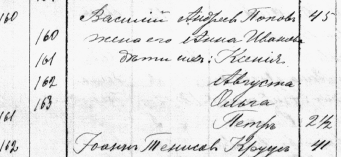 160 Василий Андреев Попов 45
160 жена его Анна Иванова
161 дети их: Ксения
162 Августа
163 Ольга
161 Петр 2½
162 Иоанн Денисов Круцъ 41